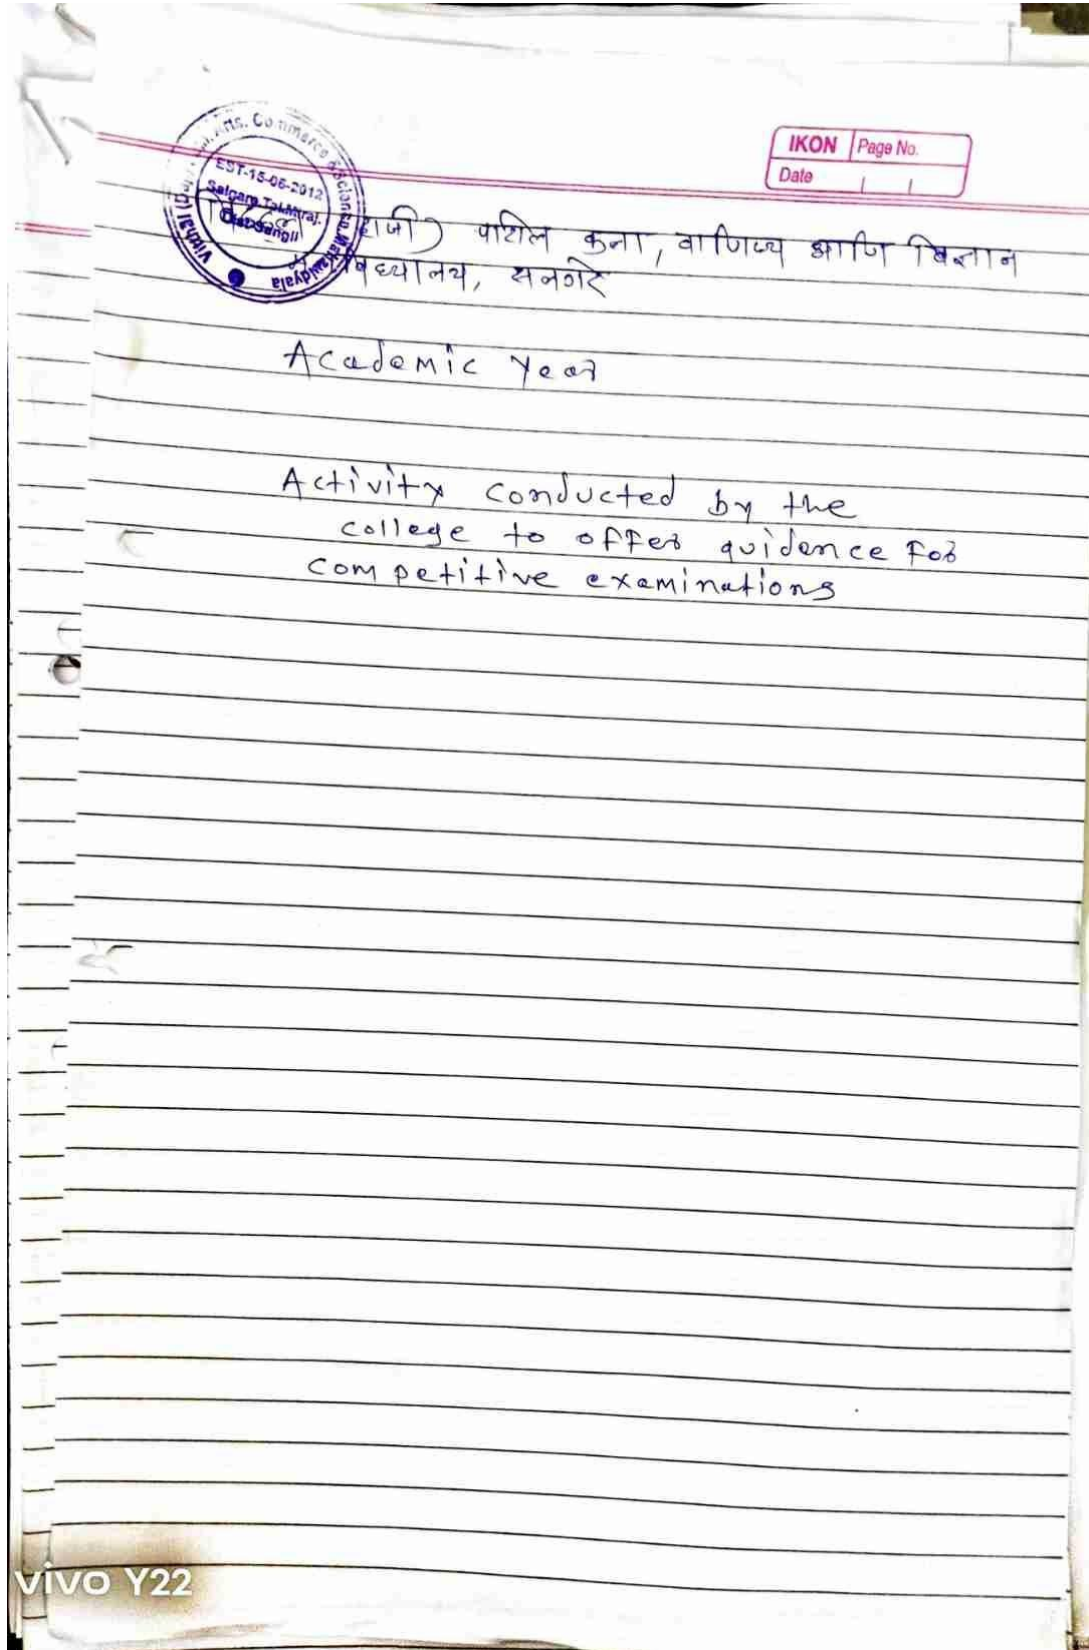 IKON Page No.
Date
Arts, Commerce & Science Mahavidyalaya
EST-15-06-2012
Salgare, Tal.Miraj,
Dist-Sangli
पाटील कला, वाणिज्य आणि विज्ञान
विद्यालय, सलगरे
Academic Year
Activity conducted by the
college to offer guidence for
competitive examinations
vivo Y22